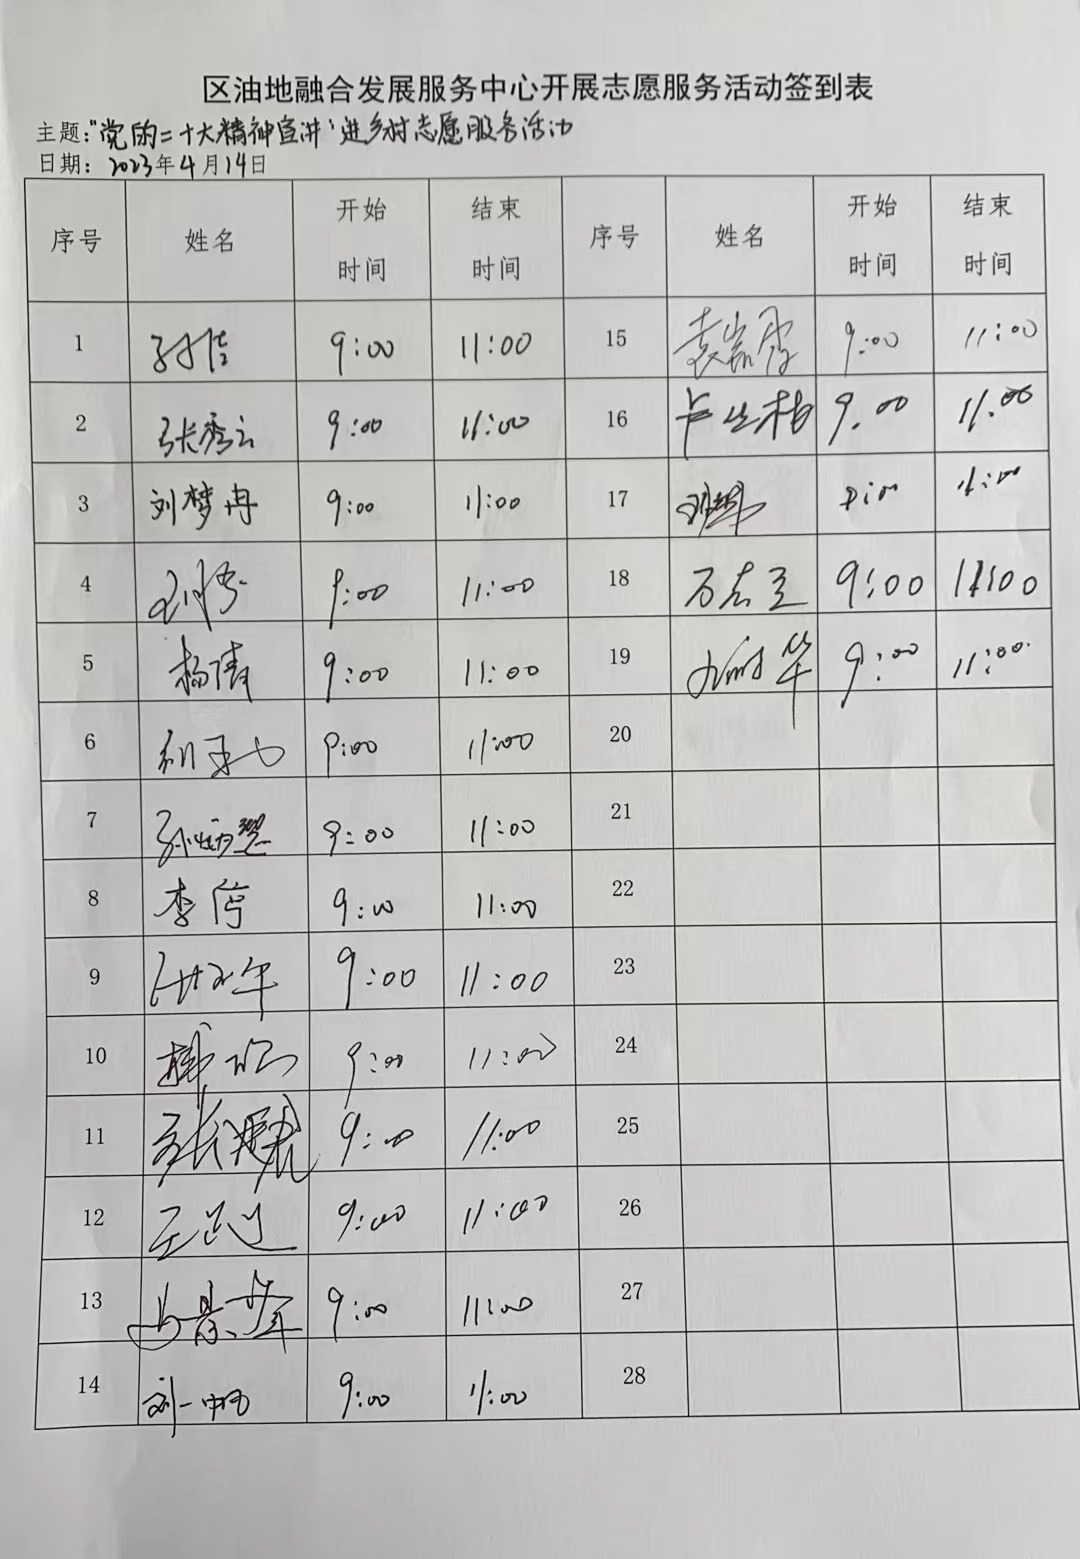 区油地融合发展服务中心开展志愿服务活动签到表
主题:"党的二十大精神宣讲"进乡村志愿服务活动
日期: 2023年4月14日
序号 姓名 开始时间 结束时间 序号 姓名 开始时间 结束时间
1 9:00 11:00 15 9:00 11:00
2 张秀云 9:00 11:00 16 9.00 11.00
3 刘梦冉 9:00 11:00 17 11:00
4 9:00 11:00 18 万志立 9:00 11:00
5 杨倩 9:00 11:00 19 9:00 11:00
6 9:00 11:00 20
7 9:00 11:00 21
8 李停 9:00 11:00 22
9 9:00 11:00 23
10 9:00 11:00 24
11 9:00 11:00 25
12 9:00 11:00 26
13 9:00 11:00 27
14 刘一帆 9:00 11:00 28